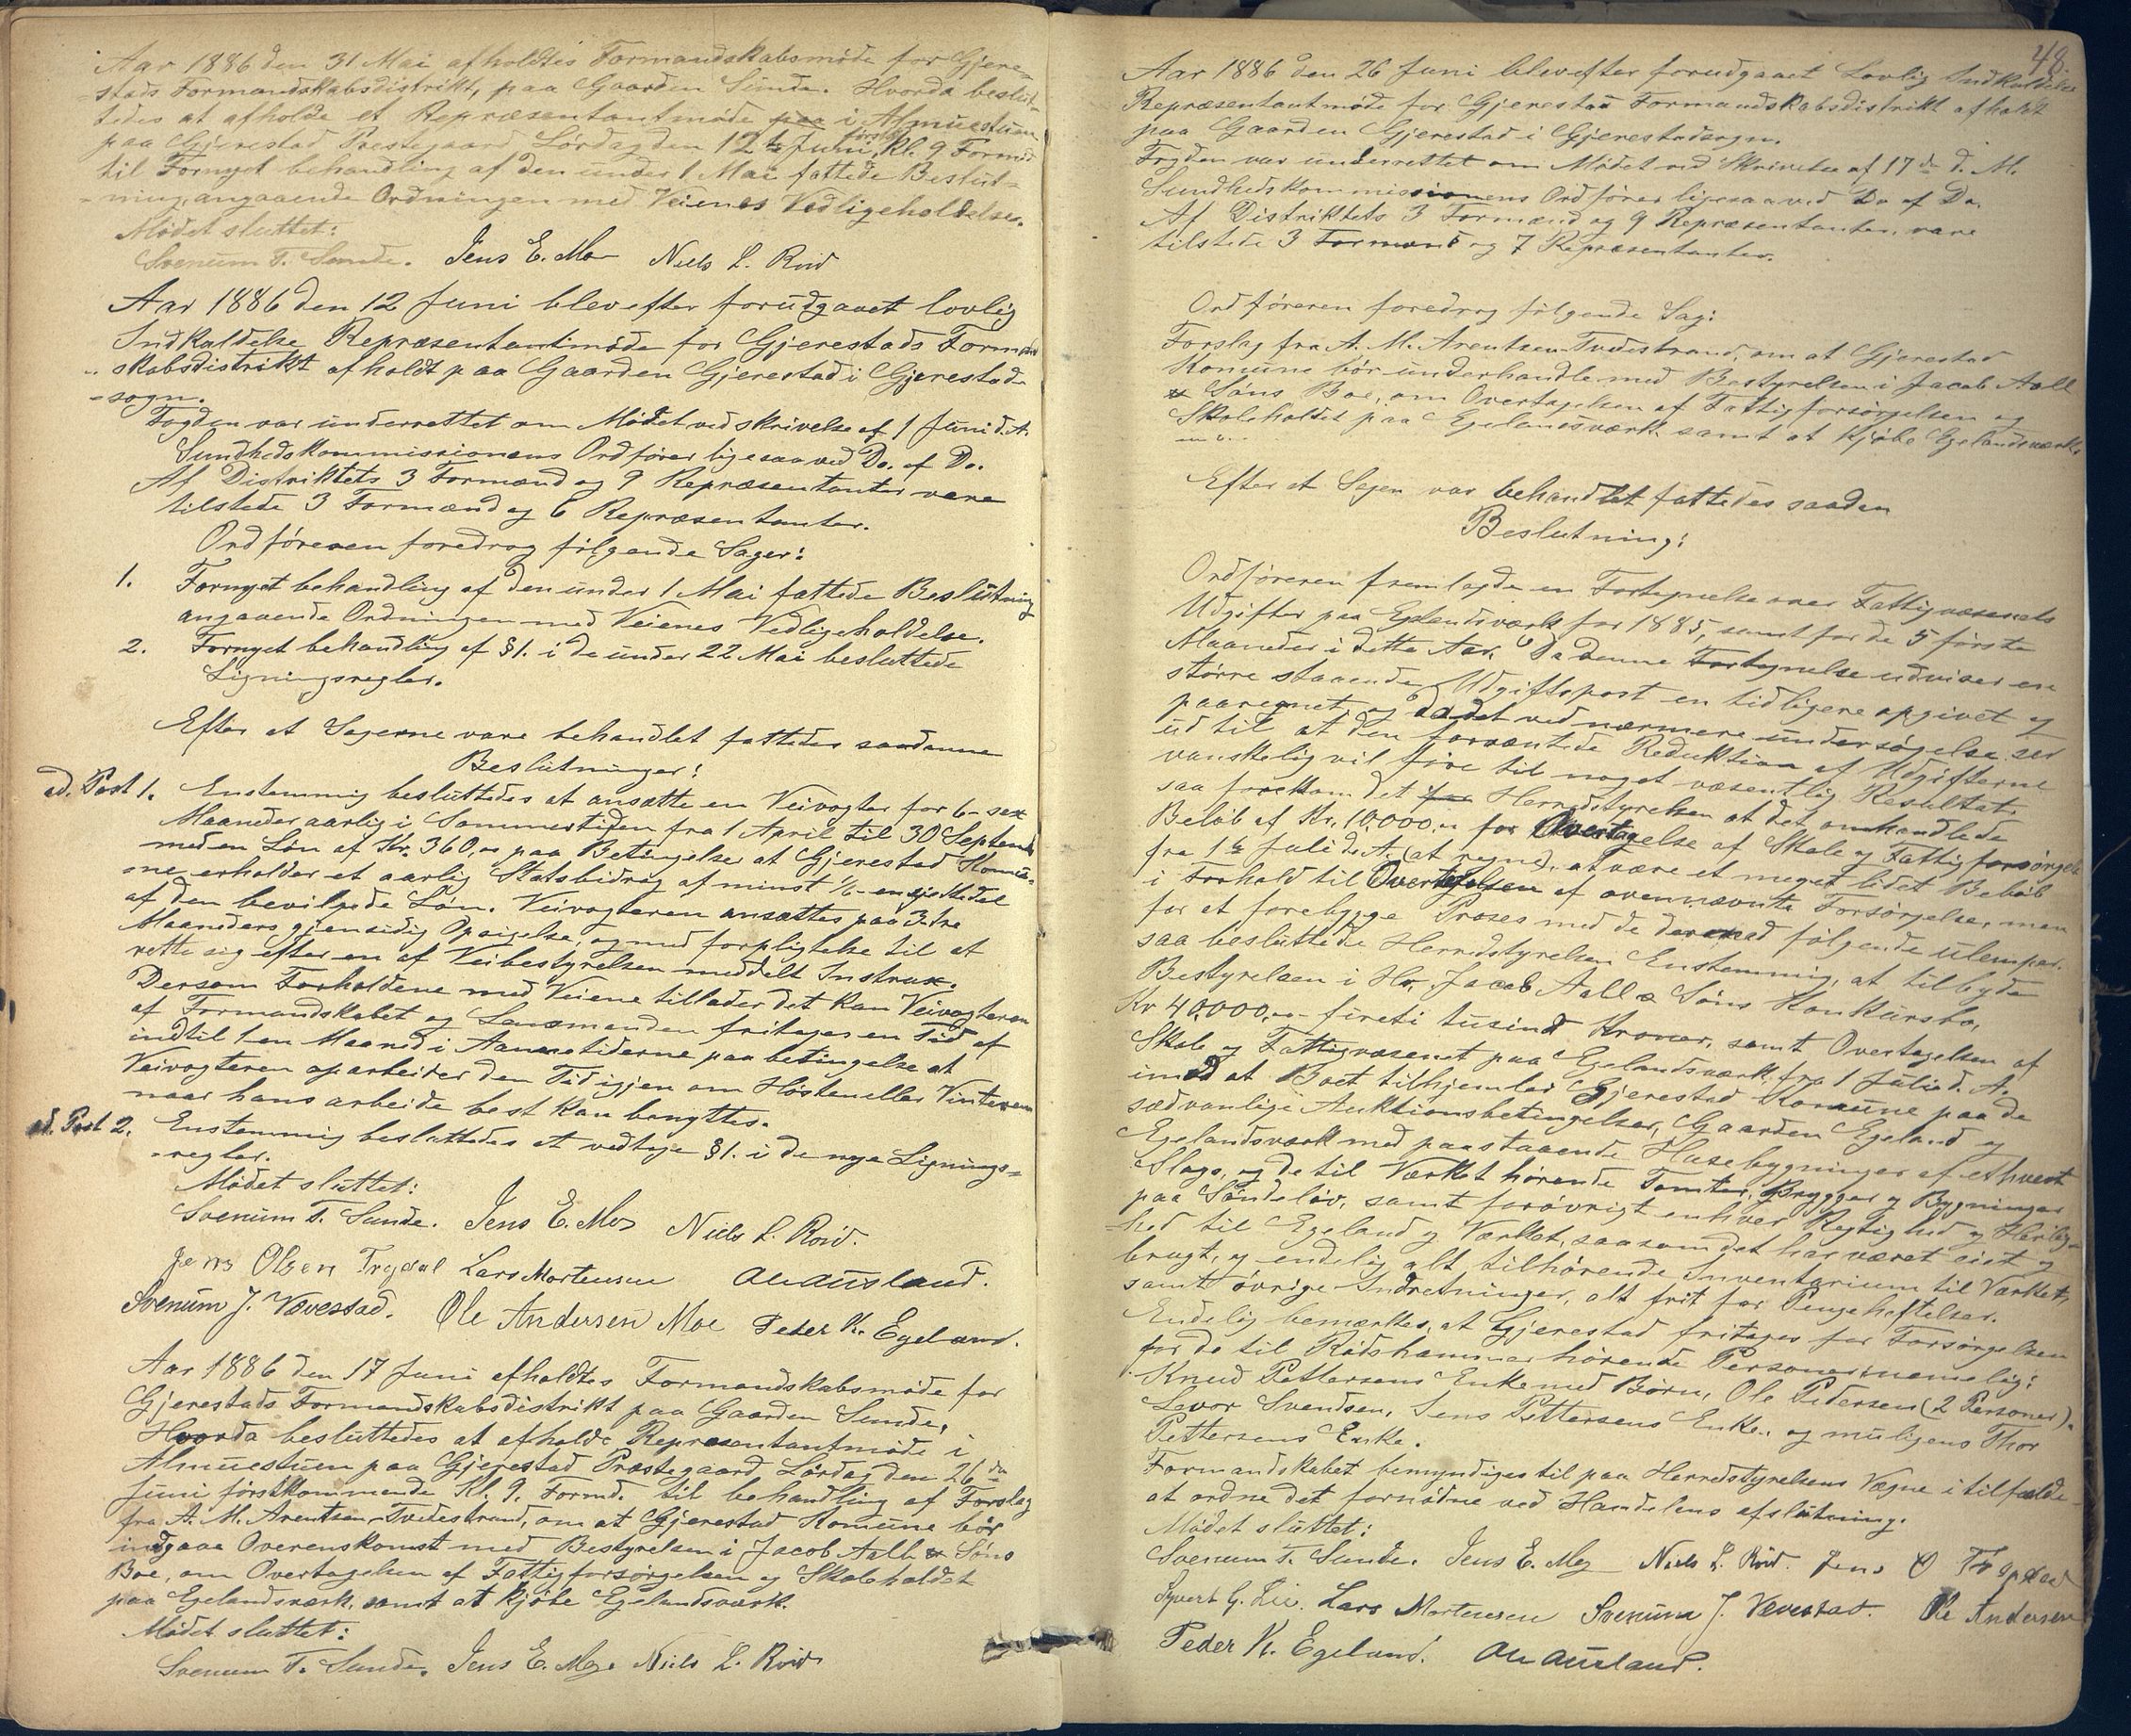 Aar 1886 den 31 Mai afholdtes Formandskabsmöde for Gjere-
stads Formandskabsdistrikt, paa Gaarden Sunde. Hvorda beslut-
tedes at afholde et Repræsentantmöde paa i Almuestuen
paa Gjerestad Præstegaard Lördag den 12te Juni först. Kl. 9 Formd.
til Fornyet behandling af den under 1 Mai fattede Beslut-
ning, angaaende Ordningen med Veienes Vedligeholdelse.
Mödet sluttet:
Svenum T. Sunde. Jens E. Moe Niels L. Röid
Aar 1886 den 12 Juni blev efter forudgaaet lovlig
Indkaldelse Repræsentantmöde for Gjerestads Formand
skabsdistrikt afholdt paa Gaarden Gjerestad i Gjerestads
-sogn.
Fogden var underrettet om Mödet ved skrivelse af 1 Juni d. A.
Sundhedskommissionens Ordförer ligesaa ved Do. af Do.
Af Distriktets 3 Formænd og 9 Repræsentanter vare
tilstede 3 Formænd og 6 Repræsentanter.
Ordföreren foredrog fölgende Sager:
1. Fornyet behandling af den under 1 Mai fattede Beslutning
angaaende Ordningen med Veienes Vedligeholdelse.
2. Fornyet behandling af §1. i de under 22 Mai besluttede
Ligningsregler.
Efter at Sagerne vare behandlet fattedes saadanne
Beslutninger:
ad. Post 1. Enstemmig besluttedes at ansætte en Veivogter for 6- sex
Maaneder aarlig i Sommertiden fra 1 April til 30 Septemb
med en Lön af Kr. 360,00 paa Betingelse at Gjerestad Komu-
ne erholder et aarlig Statsbidrag af minst 1/6 - en sjettedel
af den bevilgede Lön. Veivogteren ansættes paa 3 tre
Maaneders gjensidig Opsigelse, og med forpligtelse til at
rette sig efter en af Veibestyrelsen meddelt Instrux.
Dersom Forholdene med Veiene tillader det kan Veivogteren
af Formandskabet og Lensmanden fritages en Tid af
indtil 1 en Maaned i Aannetiderne paa betingelse at
Veivogteren oparbeider den Tid igjen om Hösten eller Vinteren
naar hans arbeide best kan benyttes.
ad. Post 2. Enstemmig besluttedes at vedtage §1. i de nye Lignings-
-regler.
Mödet sluttet:
Svenum T. Sunde. Jens E. Moe Niels L. Röid.
Jens Olsen Trydal Lars Mortensen Ole Ausland.
Svenum J. Vævestad. Ole Andersen Moe Peder K. Egeland.
Aar 1886 den 17 Juni afholdtes Formandskabsmöde for
Gjerestads Formandskabsdistrikt paa Gaarden Sunde.
Hvorda besluttedes at afholde Repræsentantmöde i
Almuestuen paa Gjerestad Præstegaard Lördag den 26de
Juni förstkommende Kl. 9. Formd. til behandling af Forslag
fra A. M. Arentsen-Tvedestrand, om at Gjerestad Komune bör
indgaaa Overenskomst med Bestyrelsen i Jacob Aall & Söns
Boe, om Overtagelsen af Fattigforsörgelsen og Skoleholdet
paa Egelandsværk, samt at kjöbe Egelandsværk.
Mödet sluttet:
Svenum T. Sunde. Jens E. Moe Niels L. Röid
48
Aar 1886 den 26 Juni blev efter forudgaaet Lovlig Indkaldelse
Repræsentantmöde for Gjerestad Formandskabsdistrikt afholdt
paa Gaarden Gjerestad i Gjerestadsogn.
Fogden var underrettet om Mödet ved Skrivelse af 17de d. M.
Sundhedskommissionens Ordförer ligesaa ved Do af Do.
Af Distriktets 3 Formænd og 9 Repræsentanter, vare
tilstede 3 Formænd og 7 Repræsentanter.
Ordföreren foredrog fölgende Sag:
Forslag fra A. M. Arentsen-Tvedestrand, om at Gjerestad
Komune bör underhandle med Bestyrelsen i Jacob Aall
& Söns Boe, om Overtagelsen af Fattigforsörgelsen og
Skoleholdet paa Egelandsværk samt at Kjöbe Egelandsværk.
Efter at Sagen var behandlet fattedes saadan
Beslutning:
Ordföreren fremlagde en Fortegnelse over Fattigvæsenets
Udgifter paa Egelandsværk for 1885, samt for de 5 förste
Maaneder i dette Aar. Da denne Fortegnelse udviser en
större staaende Udgiftspost en tidligere opgivet og
paaregnet, og da det ved nærmere undersögelse ser
ud til at den forventede Reduktion af Udgifterne
vanskelig vil före til noget væsentlig Resultat,
saa forekom det Herredstyrelsen at det omhandlede
Belöb af Kr. 10,000,00 for Overtagelse af Skole og Fattigforsörgelse
fra 1te Juli d. A. (at regne), at være et meget lidet Belöb
i Forhold til Overtagelsen af ovennævnte Forsörgelse, men
for et forebygge Proses med de dermed fölgende ulemper.
saa besluttede Herredstyrelsen Enstemmig, at tilbyde
Bestyrelsen i Hr. Jacob Aall & Söns Konkursbo,
Kr 40,000,00 - fireti tusind Kroner, samt Overtagelsen af
Skole og Fattigvæsenet paa Egelandsværk fra 1 Juli d. A.
imod at Boet tilhjemler Gjerestad Komune paa de
sædvanlige Auktionsbetingelser, Gaarden Egeland og
Egelandsværk med paastaaende Husebygninger af ethvert
Slags, og de til Værket hörende Tomter, Brygger og Bygninger
paa Söndelöv, samt forövrigt enhver Rettighed og Herlig-
hed til Egeland og Værket, saasom det har været eiet og
brugt, og endelig alt tilhörende Inventarium til Værket,
samt övrige Indretninger, alt frit for Pengeheftelser.
Endelig bemærkes, at Gjerestad fritages for Forsörgelsen
for de til Rödshammer hörende Personer, nemelig:
Knud Pettersens Enke med Börn, Ole Pedersen (2 Personer).
Levor Svendsen, Jens Pettersens Enke, og muligens Thor
Pettersens Enke.
Formandskabet bemyndiges til paa Herredstyrelsens Vegne i tilfælde
at ordne det fornödne ved Handelens afslutning.
Mödet sluttet:
Svenum T. Sunde. Jens E. Moe Niels L. Röid. Jens O Trydal
Syvert G. Lie. Lars Mortensen Svenum J. Vævestad. Ole Andersen
Peder K. Egeland. Ole Ausland.